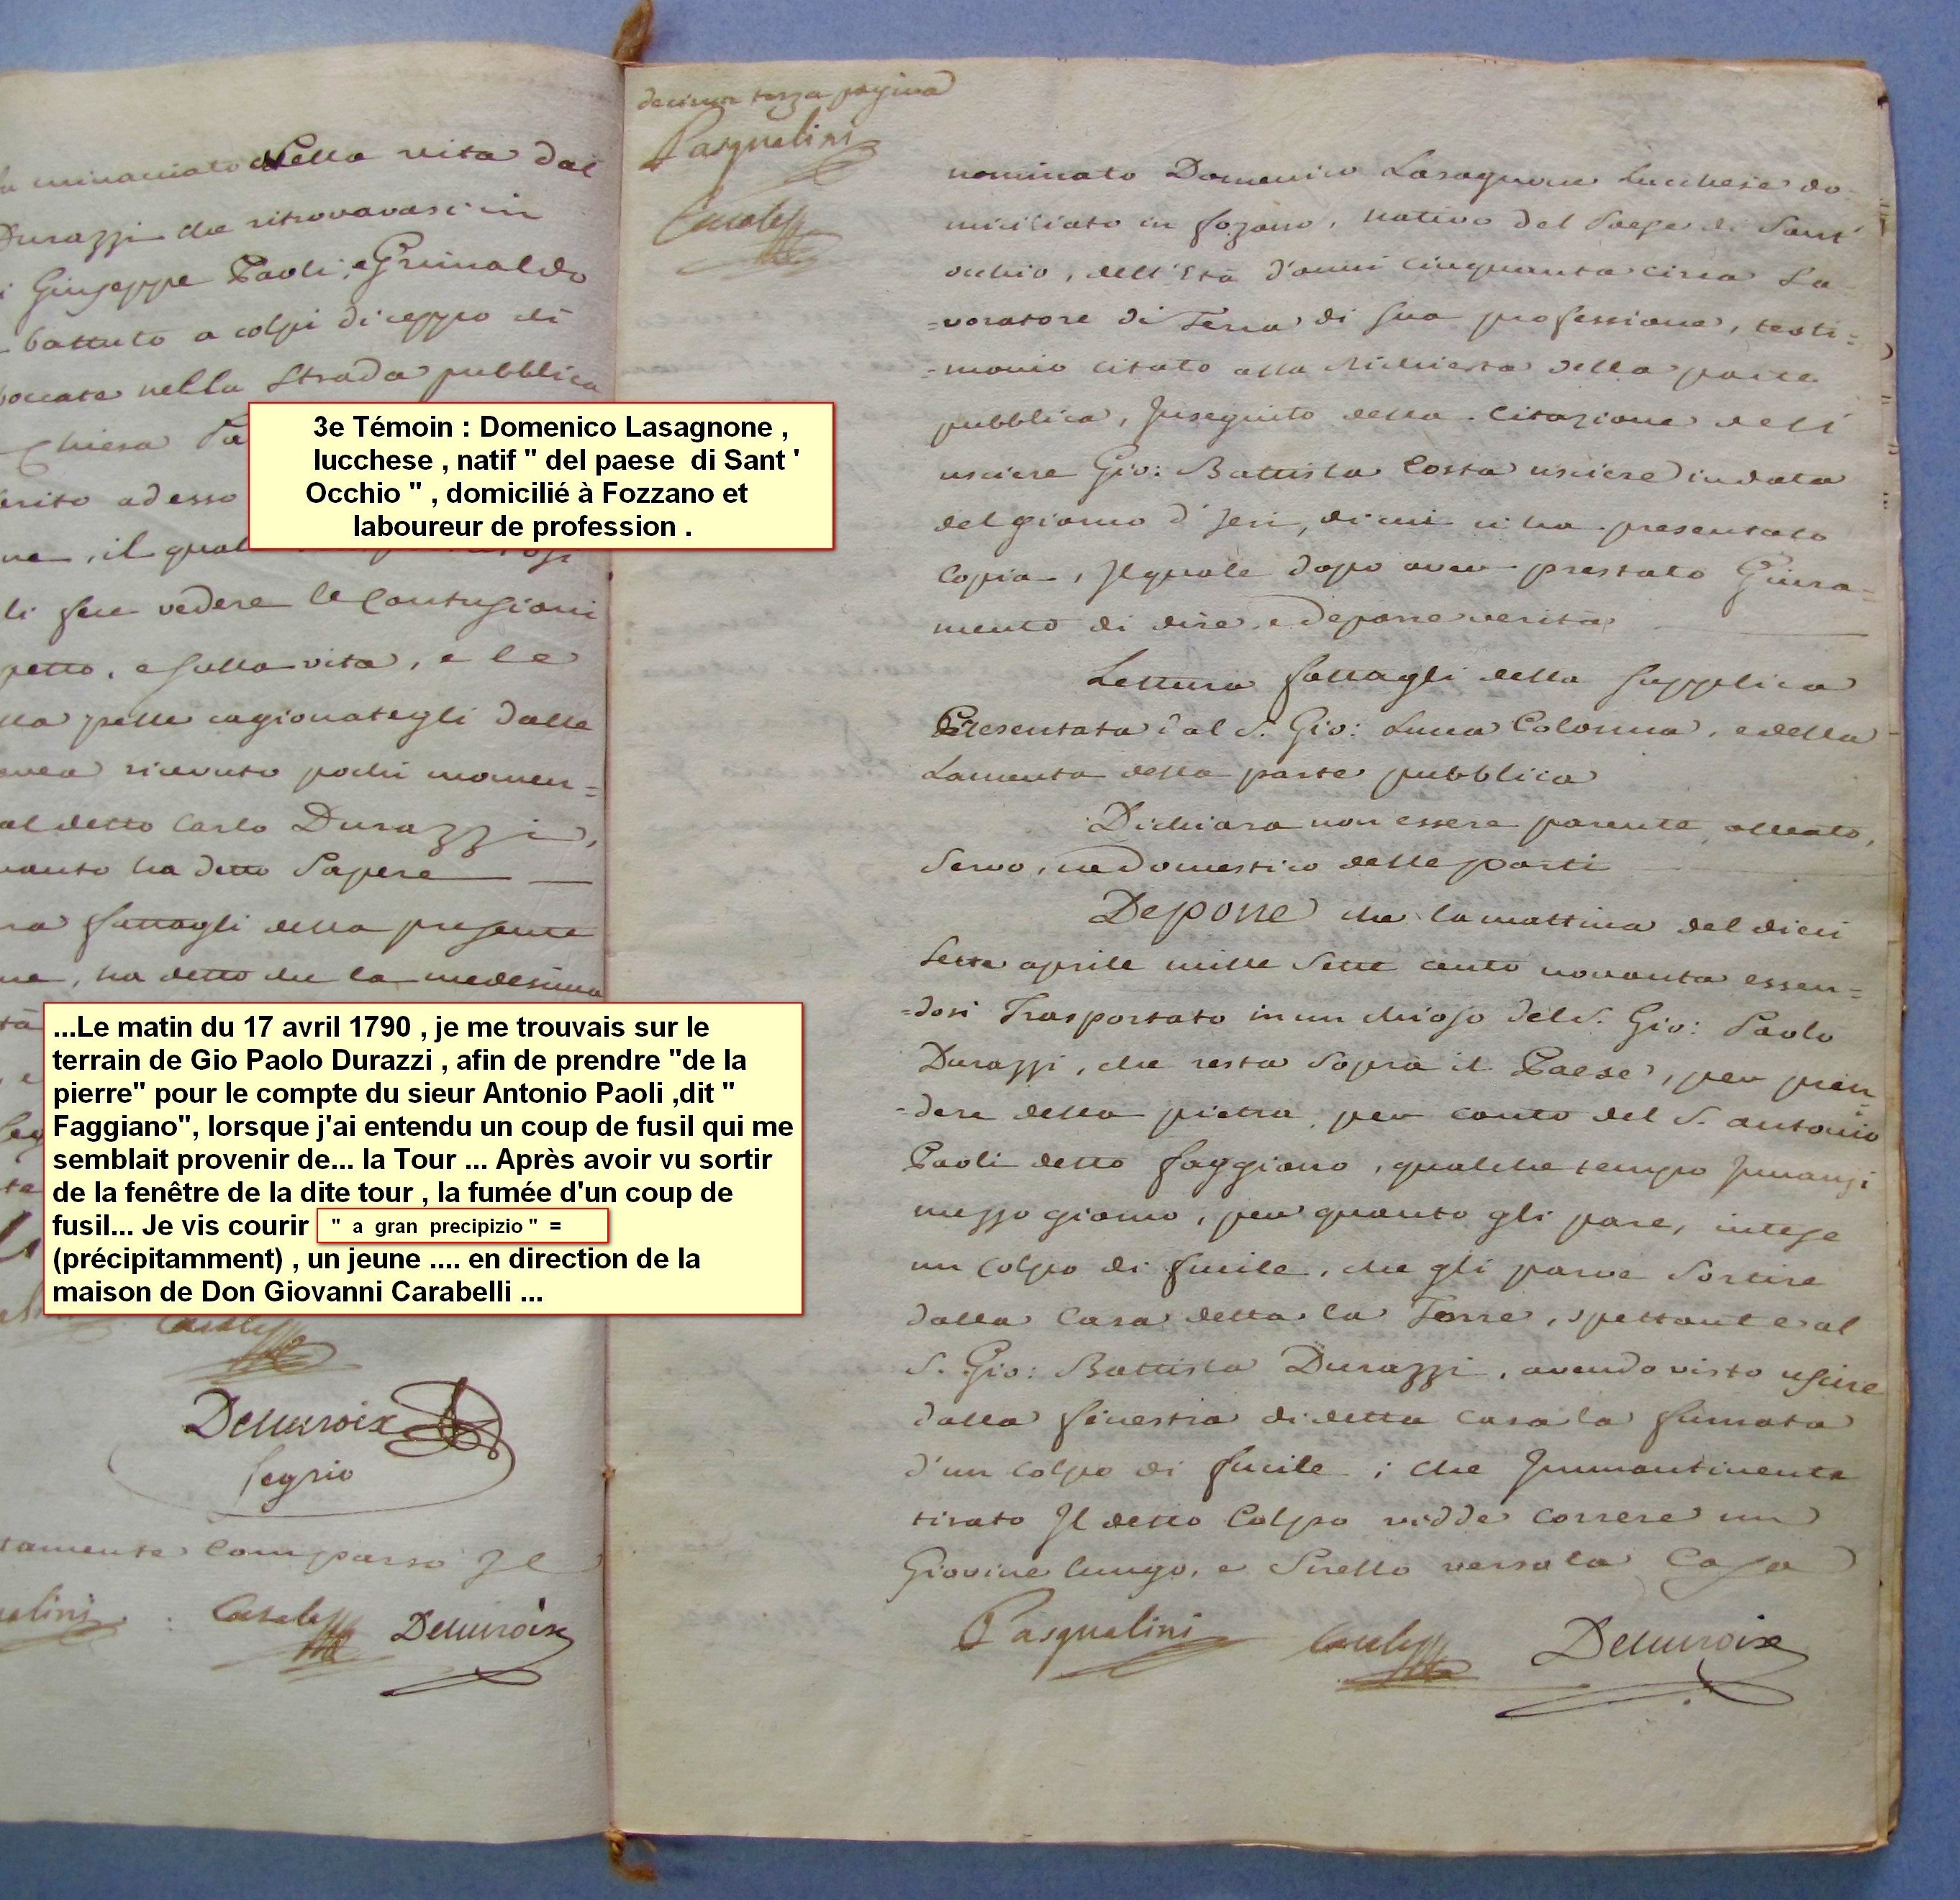 fu minacciato della vita dal
Durazzi che ritrovavasi in
i Giuseppe Paoli, e Grimaldo
battuto a colpi di ceppo di
boccate nella Strada pubblica
Chiesa Pa
erito adesso
ne, il qual
li fece vedere le Contusioni
petto, e sulla vita, e le
lla pelle cagionategli dalle
avea ricevuto pochi momen=
al detto Carlo Durazzi,
uanto ha detto Sapere
ra fattagli della presente
ne, ha detto che la medesima
Delacroix
Segrio
tamente Comparso Il
alini Delacroix
3e Témoin : Domenico Lasagnone ,
lucchese , natif " del paese di Sant '
Occhio " , domicilié à Fozzano et
laboureur de profession .
...Le matin du 17 avril 1790 , je me trouvais sur le
terrain de Gio Paolo Durazzi , afin de prendre "de la
pierre" pour le compte du sieur Antonio Paoli ,dit "
Faggiano", lorsque j'ai entendu un coup de fusil qui me
semblait provenir de... la Tour ... Après avoir vu sortir
de la fenêtre de la dite tour , la fumée d'un coup de
fusil... Je vis courir " a gran precipizio " =
(précipitamment) , un jeune .... en direction de la
maison de Don Giovanni Carabelli ...
decima terza pagina
Pasqualini
nominato Domenico Lasagnone Lucchese do-
miciliato in fozano, nativo del Paese di Sant'
occhio, dell'Età d'anni cinquanta circa La-
=voratore di Terra di sua professione, testi=
=monio citato alla Richiesta della parte
pubblica, Inseguito della Citazione dell'
usciere Gio: Battista Costa usciere in data
del giorno d'Jeri, di cui ci ha presentato
Copia, Il quale dopo aver prestato Giura=
mento di dire, e deporre verità
Lettura fattagli della Supplica
Presentata dal S. Gio: Luca Colonna, e della
Lamenta della parte pubblica
Dichiara non essere parente, alleato,
Servo, ne Domestico delle parti
Depone che la mattina del dieci
Sette aprile mille Sette cento novanta essen=
=dosi Trasportato in un chioso del S. Gio: Paolo
Durazzi, che resta Sopra il Paese, per pren
=dere della pietra per conto del S. antonio
Paoli detto faggiano, qualche tempo Innanzi
mezzo giorno, per quanto gli pare, intese
un colpo di fucile, che gli parve Sortire
dalla Casa detta la Torre, spettante al
S. Gio: Battista Durazzi, avendo visto uscire
dalla finestra di detta casa la fumata
d'un colpo di fucile; che Immantinente
tirato Il detto Colpo vidde correre un
Giovine lungo, e Snello verso la Casa
Pasqualini Delacroix